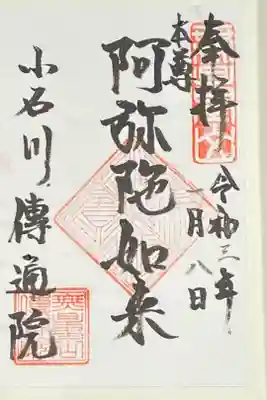 奉拝
令和三年
一月八日
本尊
阿弥陀如来
小石川傳通院